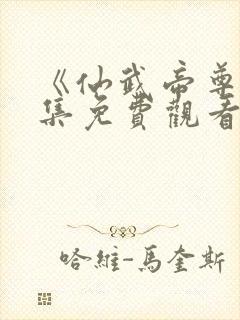 《仙武帝尊
集免費觀看
哈維-馬奎斯